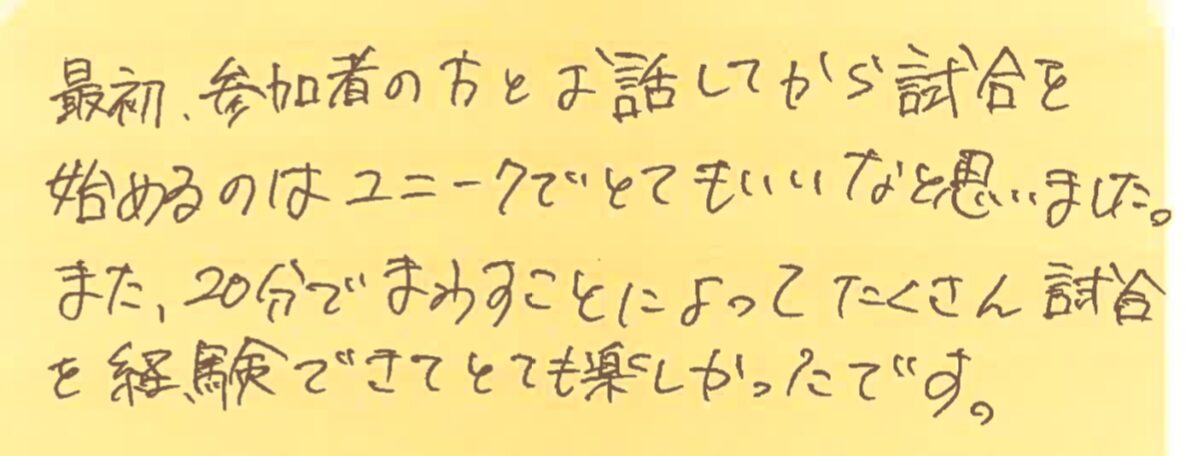 最初、参加者の方とお話してから試合を
始めるのはユニークでとてもいいなと思いました。
また、20分でまわすことによってたくさん試合
を経験できてとても楽しかったです。